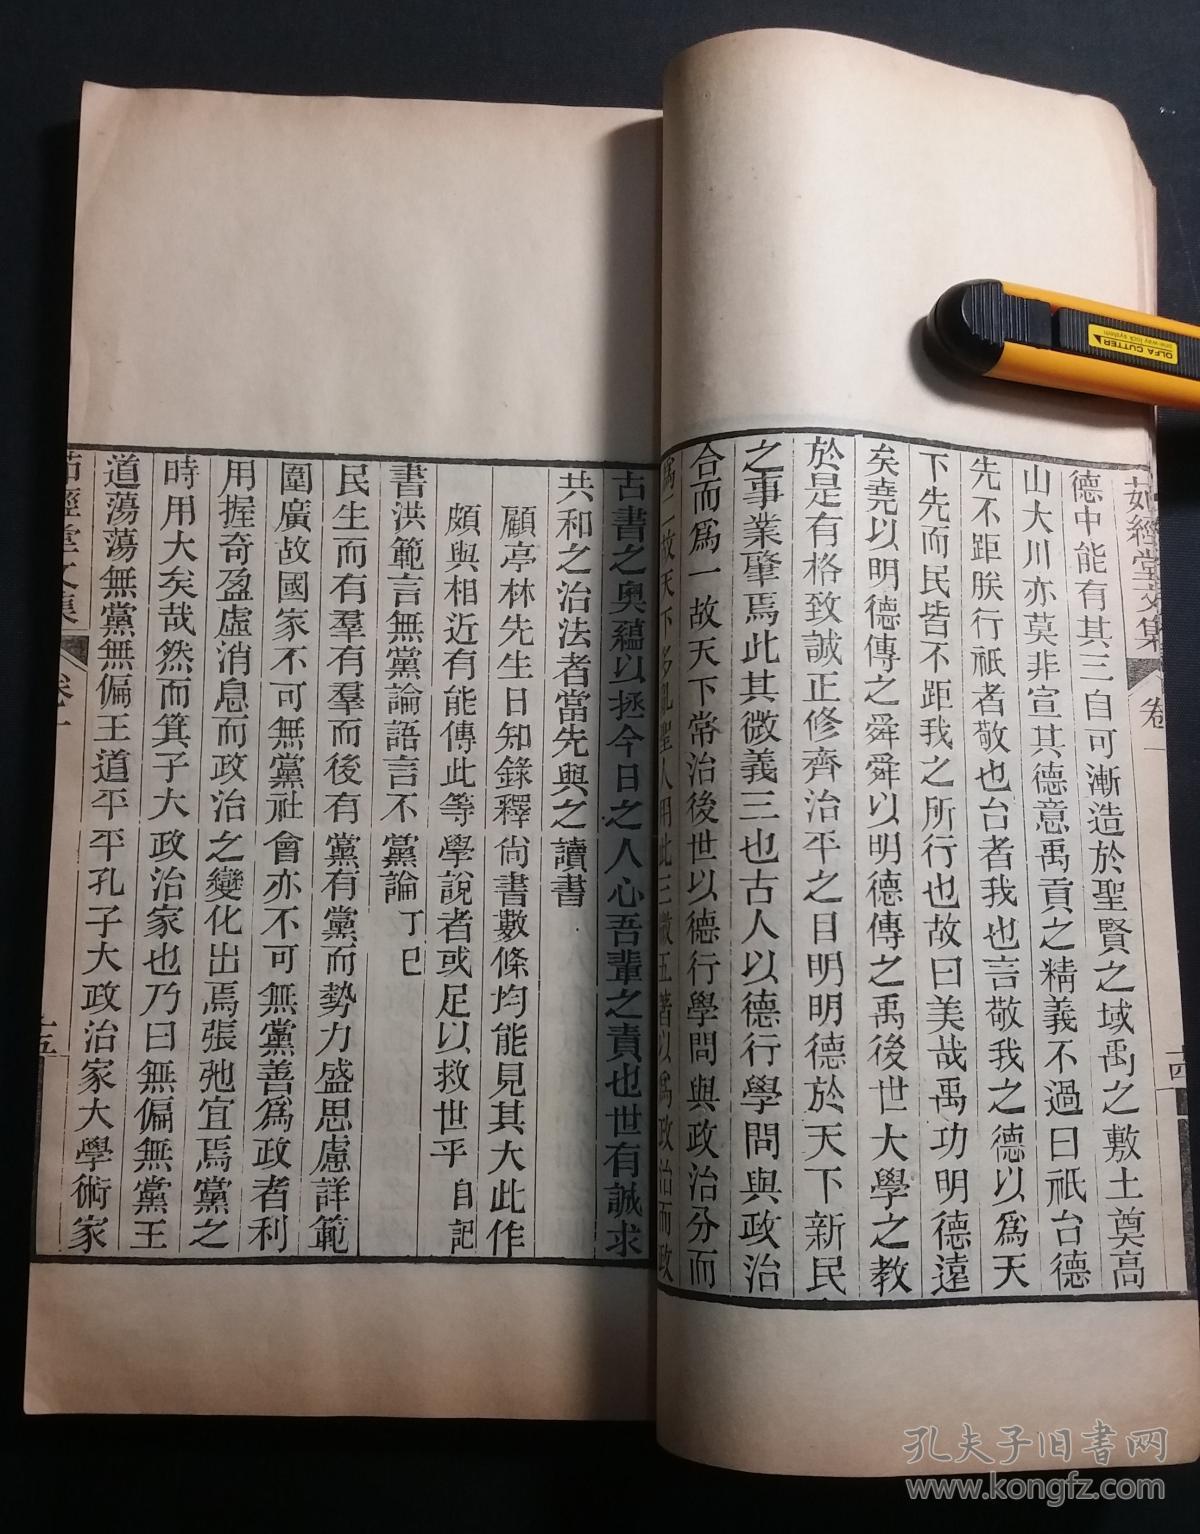 茹經堂文集 卷一 十四
德中能有其三自可漸造於聖賢之域禹之敷土奠高
山大川亦莫非宣其德意禹貢之精義不過曰祇台德
先不距朕行祇者敬也台者我也言敬我之德以爲天
下先而民皆不距我之所行也故曰美哉禹功明德遠
矣堯以明德傳之舜舜以明德傳之禹後世大學之教
於是有格致誠正修齊治平之目明明德於天下新民
之事業肇焉此其微義三也古人以德行學問與政治
合而爲一故天下常治後世以德行學問與政治分而
爲二故天下多亂聖人用此三微五著以爲政治而政
古書之奧蘊以拯今日之人心吾輩之責也世有誠求
共和之治法者當先與之讀書
顧亭林先生日知錄釋尙書數條均能見其大此作
頗與相近有能傳此等學說者或足以救世乎 自記
書洪範言無黨論語言不黨論 丁巳
民生而有羣有羣而後有黨有黨而勢力盛思慮詳範
圍廣故國家不可無黨社會亦不可無黨善爲政者利
用握奇盈虛消息而政治之變化出焉張弛宜焉黨之
時用大矣哉然而箕子大政治家也乃曰無偏無黨王
道蕩蕩無黨無偏王道平平孔子大政治家大學術家
茹經堂文集 卷一 十五
OLFA CUTTER
one way lock system
孔夫子旧書网
www.kongfz.com